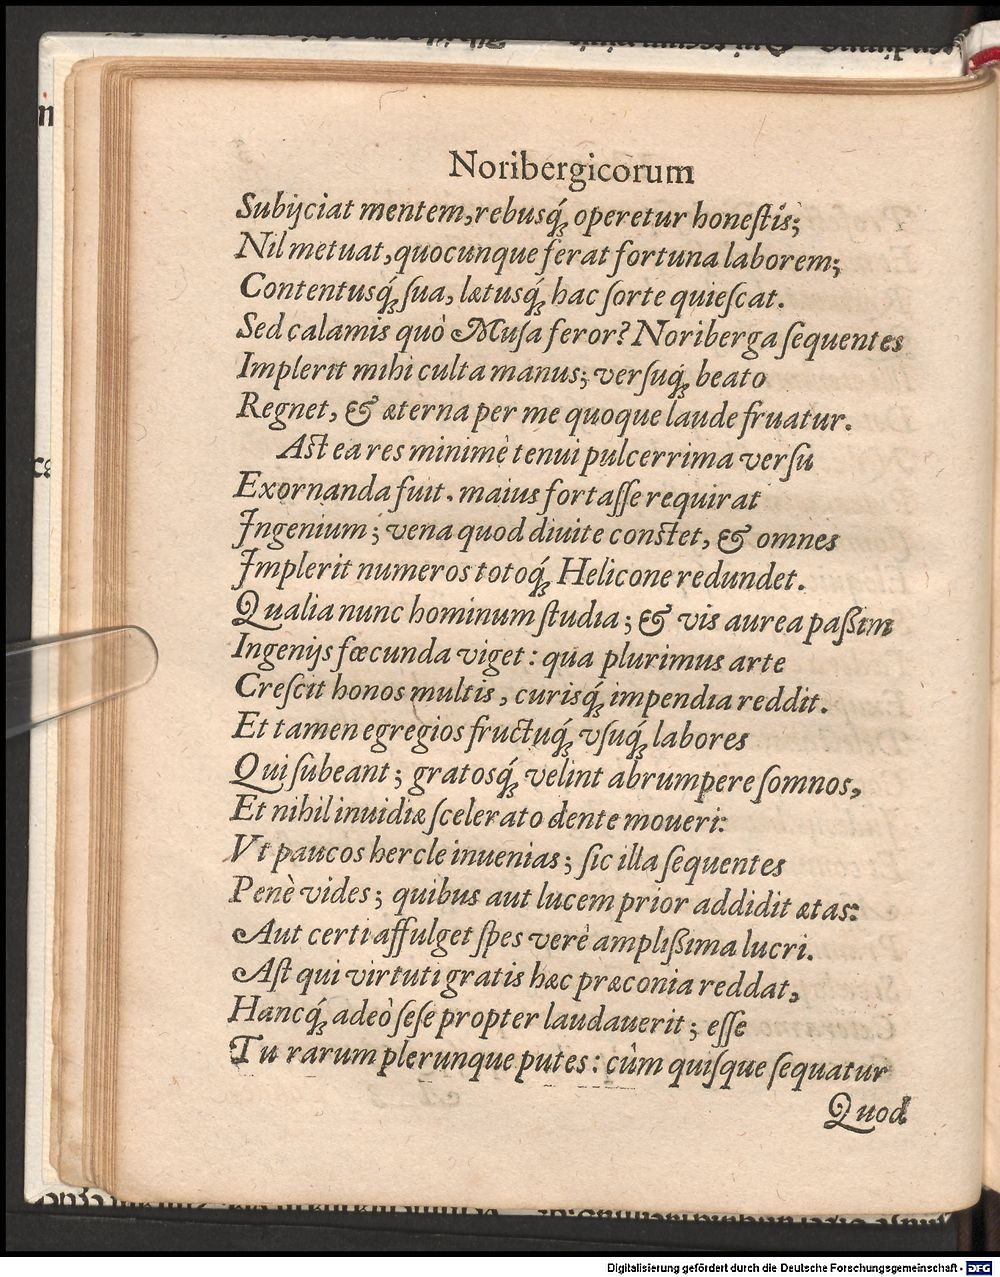 Noribergicorum
Subijciat mentem, rebusq́ꝫ operetur honeſtis;
Nil metuat, quocunque ferat fortuna laborem;
Contentusq́ꝫ ſua, lætusq́ꝫ hac ſorte quieſcat.
Sed calamis quò Muſa feror? Noriberga ſequentes
Implerit mihi culta manus; verſuq́ꝫ beato
Regnet, & æterna per me quoque laude fruatur.
Aſt ea res minimè tenui pulcerrima verſu
Exornanda fuit. maius fortaſſe requirat
Ingenium; vena quod diuite conſtet, & omnes
Implerit numeros totoq́ꝫ Helicone redundet.
Qualia nunc hominum ſtudia; & vis aurea paßim
Ingenijs fœcunda viget: qua plurimus arte
Creſcit honos multis, curisq́ꝫ impendia reddit.
Et tamen egregios fructuq́ꝫ vſuq́ꝫ labores
Qui ſubeant; gratosq́ꝫ velint abrumpere ſomnos,
Et nihil inuidiæ ſcelerato dente moueri:
Vt paucos hercle inuenias; ſic illa ſequentes
Penè vides; quibus aut lucem prior addidit ætas:
Aut certi affulget ſpes verè amplißima lucri.
Aſt qui virtuti gratis hæc præconia reddat,
Hancq́ꝫ adeò ſeſe propter laudauerit; eſſe
Tu rarum plerunque putes: cùm quiſque ſequatur
Quod
Digitalisierung gefördert durch die Deutsche Forschungsgemeinschaft - DFG